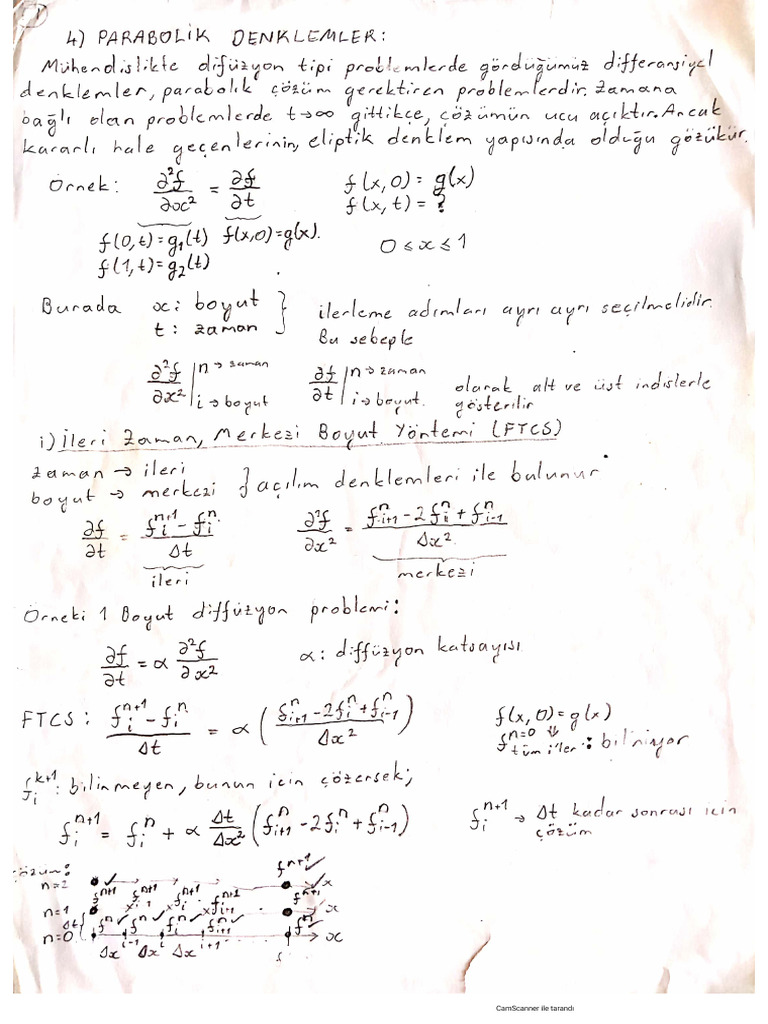 4) PARABOLİK DENKLEMLER:
Mühendislikte difüzyon tipi problemlerde gördüğümüz differansiyel
denklemler, parabolik çözüm gerektiren problemlerdir. Zamana
bağlı olan problemlerde t→∞ gittikçe, çözümün ucu açıktır. Ancak
kararlı hale geçenlerinin, eliptik denklem yapısında olduğu gözükür.
Örnek: ∂²f/∂x² = ∂f/∂t f(x,0) = g(x)
f(x,t) = ?
f(0,t) = g₁(t) f(x,0) = g(x). 0 ≤ x ≤ 1
f(1,t) = g₂(t)
Burada x: boyut } ilerleme adımları ayrı ayrı seçilmelidir.
t: zaman } Bu sebeple
∂²f/∂x² | n→zaman i→boyut ∂f/∂t | n→zaman i→boyut. olarak alt ve üst indislerle
gösterilir
i) İleri Zaman, Merkezi Boyut Yöntemi (FTCS)
zaman → ileri
boyut → merkezi } açılım denklemleri ile bulunur
∂f/∂t = (fᵢⁿ⁺¹ - fᵢⁿ)/Δt ∂²f/∂x² = (fᵢ₊₁ⁿ - 2fᵢⁿ + fᵢ₋₁ⁿ)/Δx²
ileri merkezi
Örnek: 1 Boyut diffüzyon problemi:
∂f/∂t = α ∂²f/∂x² α: diffüzyon katsayısı
FTCS: (fᵢⁿ⁺¹ - fᵢⁿ)/Δt = α ((fᵢ₊₁ⁿ - 2fᵢⁿ + fᵢ₋₁ⁿ)/Δx²) f(x,0) = g(x)
⇓
fⁿ⁼⁰ tüm i'ler : biliniyor
fᵢᵏ⁺¹: bilinmeyen, bunun için çözersek;
fᵢⁿ⁺¹ = fᵢⁿ + α Δt/Δx² (fᵢ₊₁ⁿ - 2fᵢⁿ + fᵢ₋₁ⁿ) fᵢⁿ⁺¹ → Δt kadar sonrası için
çözüm
çözüm: fⁿ⁺¹ ✓
n=2 ✓ x
fⁿ⁺¹ fⁿ⁺¹ᵢ₋₁ fᵢⁿ⁺¹ fᵢ₊₁ⁿ⁺¹ fⁿ⁺¹
n=1 x
Δt fⁿ ✓ fⁿ ✓ fᵢⁿ ✓ fᵢ₊₁ⁿ ✓ fⁿ ✓
n=0 i-1 i i+1 x
Δx Δx Δx
CamScanner ile tarandı